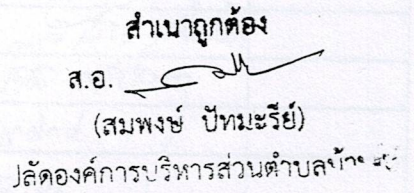 สำเนาถูกต้อง
ส.อ.
(สมพงษ์ ปัทมะรีย์)
ปลัดองค์การบริหารส่วนตำบล